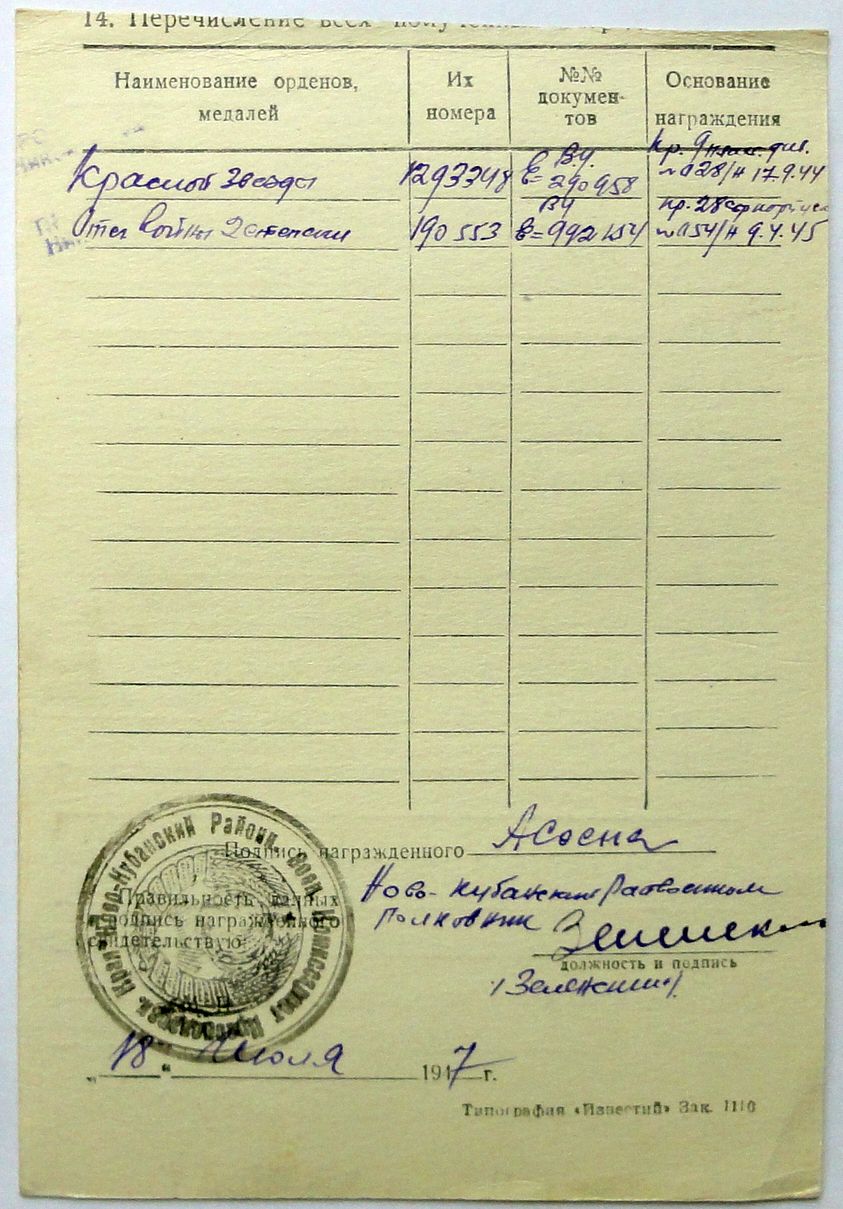 14. Перечисление всех
Наименование орденов, медалей
Их номера
№№ документов
Основание награждения
Красной Звезды
1293348
ВУ
В= 290958
Пр. 9
№ 028/н 17.9.44
Отеч Войны 2 степени
190553
ВУ
В= 992154
Пр. 28
№ 054/н 9.4.45
Подпись награжденного АСосна
Ново-Кубанский Райвоенком
Правильность данных
Полковник
подпись награжденного
свидетельствую:
должность и подпись
/Зеленский/
Ново-Кубанский Районн. Воен. Комиссариат
„18“ Июля 1947 г.
Типография «Известий» Зак. 1110